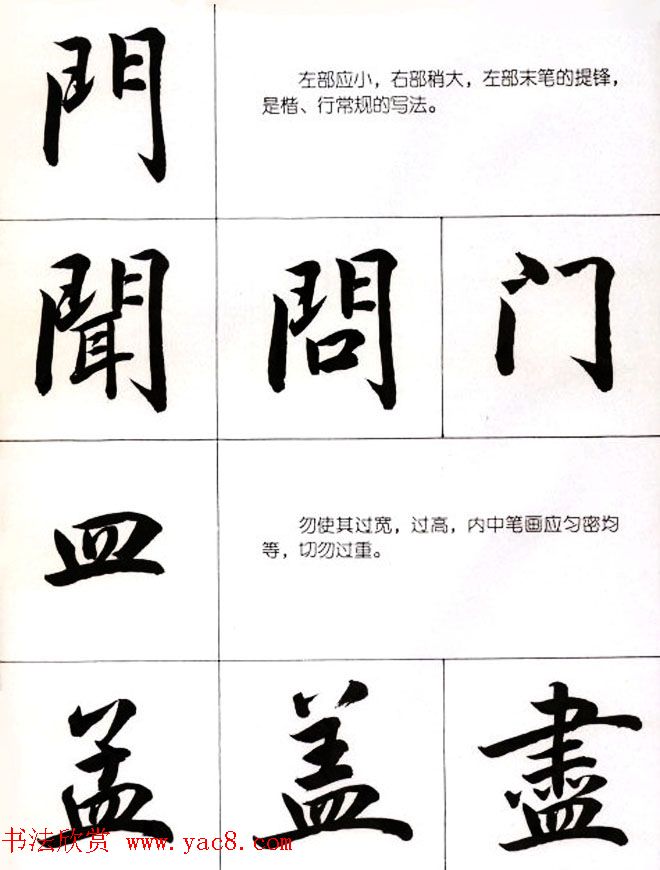 門
左部应小，右部稍大，左部末笔的提锋，
是楷、行常规的写法。
聞 問 门
皿
勿使其过宽，过高，内中笔画应匀密均
等，切勿过重。
孟 盖 盡
书法欣赏 www.yac8.com